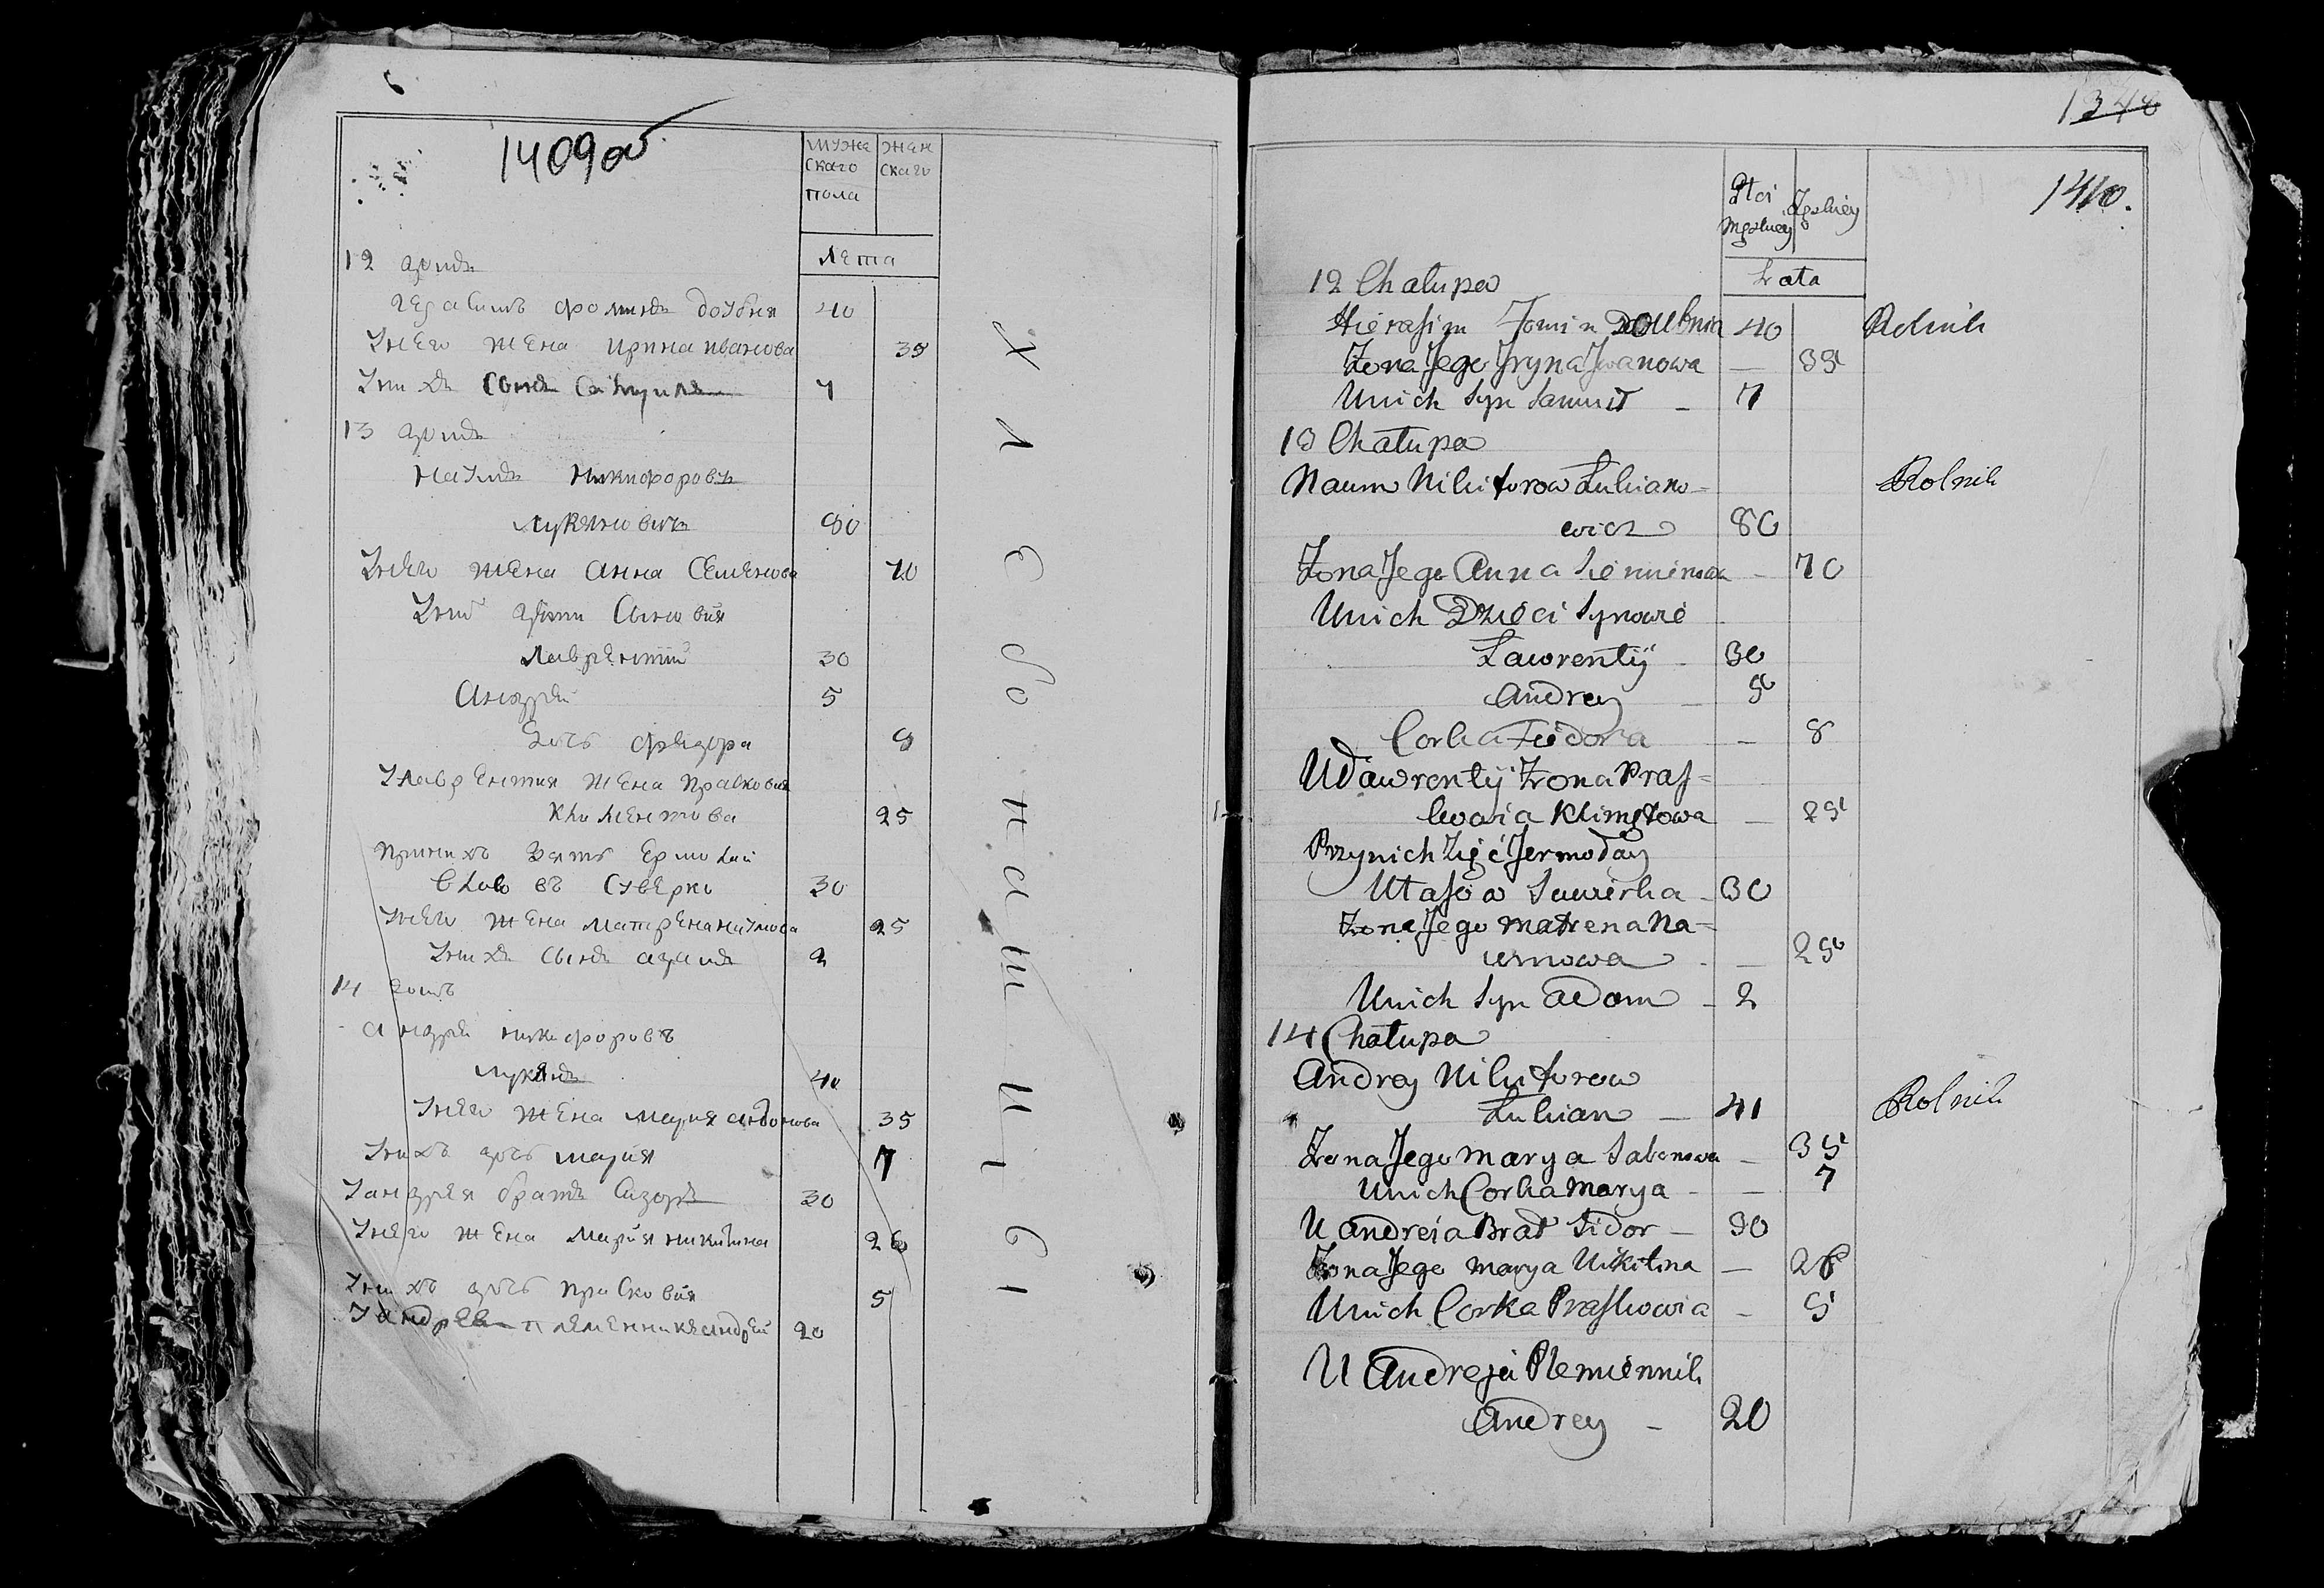 1409 об
мужескаго пола
женскаго
Лета
12 домъ
Герасимъ Фоминъ Доубня 40
У него жена Ирина Иванова 35
У нихъ сынъ Самуилъ 7
13 домъ
Наумъ Никифоровъ
Лукяновичъ 80
У него жена Анна Семенова 70
У них дети сыновия
Лаврентий 30
Андрей 5
Дочь Федора 8
У Лаврентия жена Прасковия
Климентова 25
При нихъ зять Ермолай
Власовъ Суверко 30
У него жена Матрена Наумова 25
У нихъ сынъ Адамъ 2
14 домъ
Андрей Никифоровъ
Лукянъ 40
У него жена Мария
35
У нихъ дочь Мария 7
У Андрея братъ Сидоръ 30
У него жена Мария Никитина 26
У нихъ дочь Прасковия 5
У Андрея племенникъ Андрей 20
Хлебопашцы
1348
1410.
Płci Męzkiey
Żeskiey
Lata
12 Chałupa
Hierasim Fomin Doubnia 40 Rolnik
Żona Jego Iryna Iwanowa — 35
U nich Syn Samuił – 7
13 Chałupa
Naum Nikiforow Łukiano- Rolnik
wicz 80
Żona Jego Anna Siemienowa – 70
U nich Dzieci Synowie
Ławrentij – 30
Andrey – 5
Corka Fiedora – 8
U Ławrentij Żona Pras=
kowia Klimętowa – 25
Przy nich Zięć Jermołay
Ułasow Suwierka – 30
Żona Jego Matrena Na=
umowa – 25
U nich Syn Adam – 2
14 Chałupa
Andrey Nikiforow
Łukian – 41 Rolnik
Żona Jego Marya Sabonowa – 35
U nich Corka Marya – – 7
U Andreia Brat Sidor – 30
Żona Jego Marya Nikitina – 26
U nich Corka Praskowia – 5
U Andreja Plemiennik
Andrey – 20